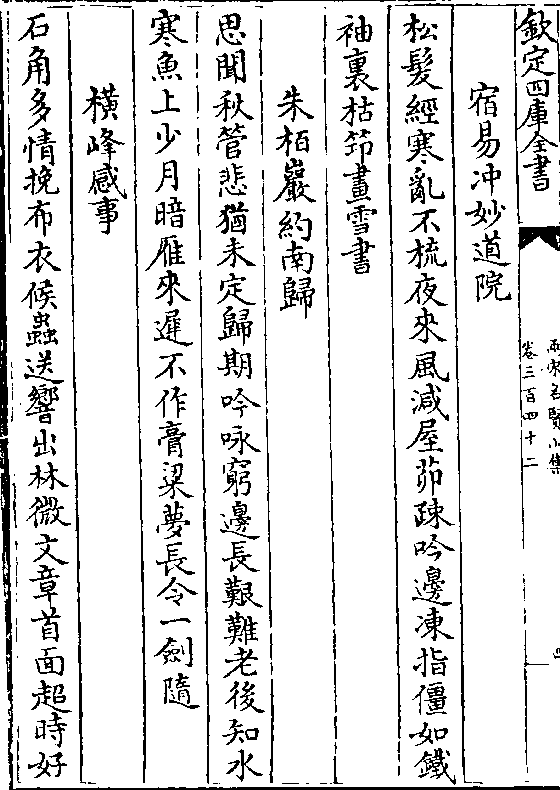 欽定四庫全書
兩宋名賢小集
卷三百四十二
宿易冲妙道院
松髮經寒亂不梳夜來風減屋茆疎吟邊凍指僵如鐵
袖裏枯筇畫雪書
朱栢巖約南歸
思聞秋管悲猶未定歸期吟咏窮邊長艱難老後知水
寒魚上少月暗雁來遲不作膏粱夢長令一劍隨
橫峰感事
石角多情挽布衣候蟲送響出林微文章首面超時好